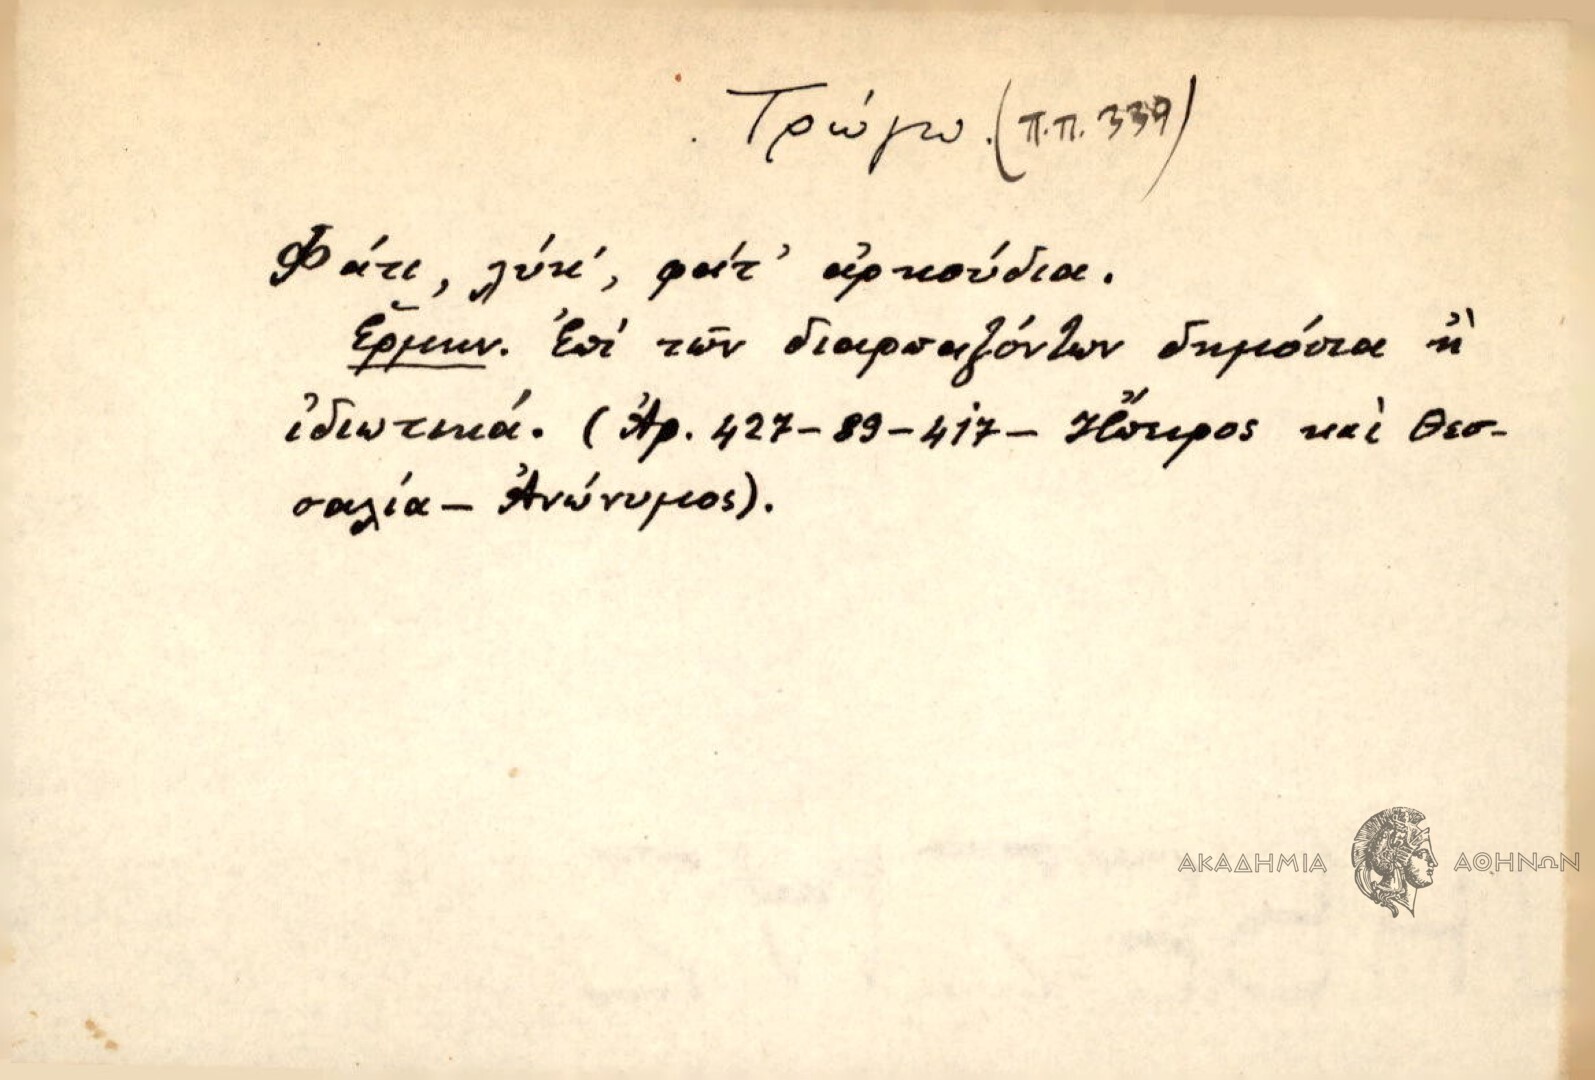 Τρώγω. (π.π. 339)
Φάτε, λύκ', φάτ' ἀρκούδια.
Ἑρμην. Ἐπὶ τῶν διαρπαζόντων δημόσια ἢ
ἰδιωτικά. (Ἀρ. 427-89-417- Ἤπειρος καὶ Θεσ-
σαλία - Ἀνώνυμος).
ΑΚΑΔΗΜΙΑ ΑΘΗΝΩΝ